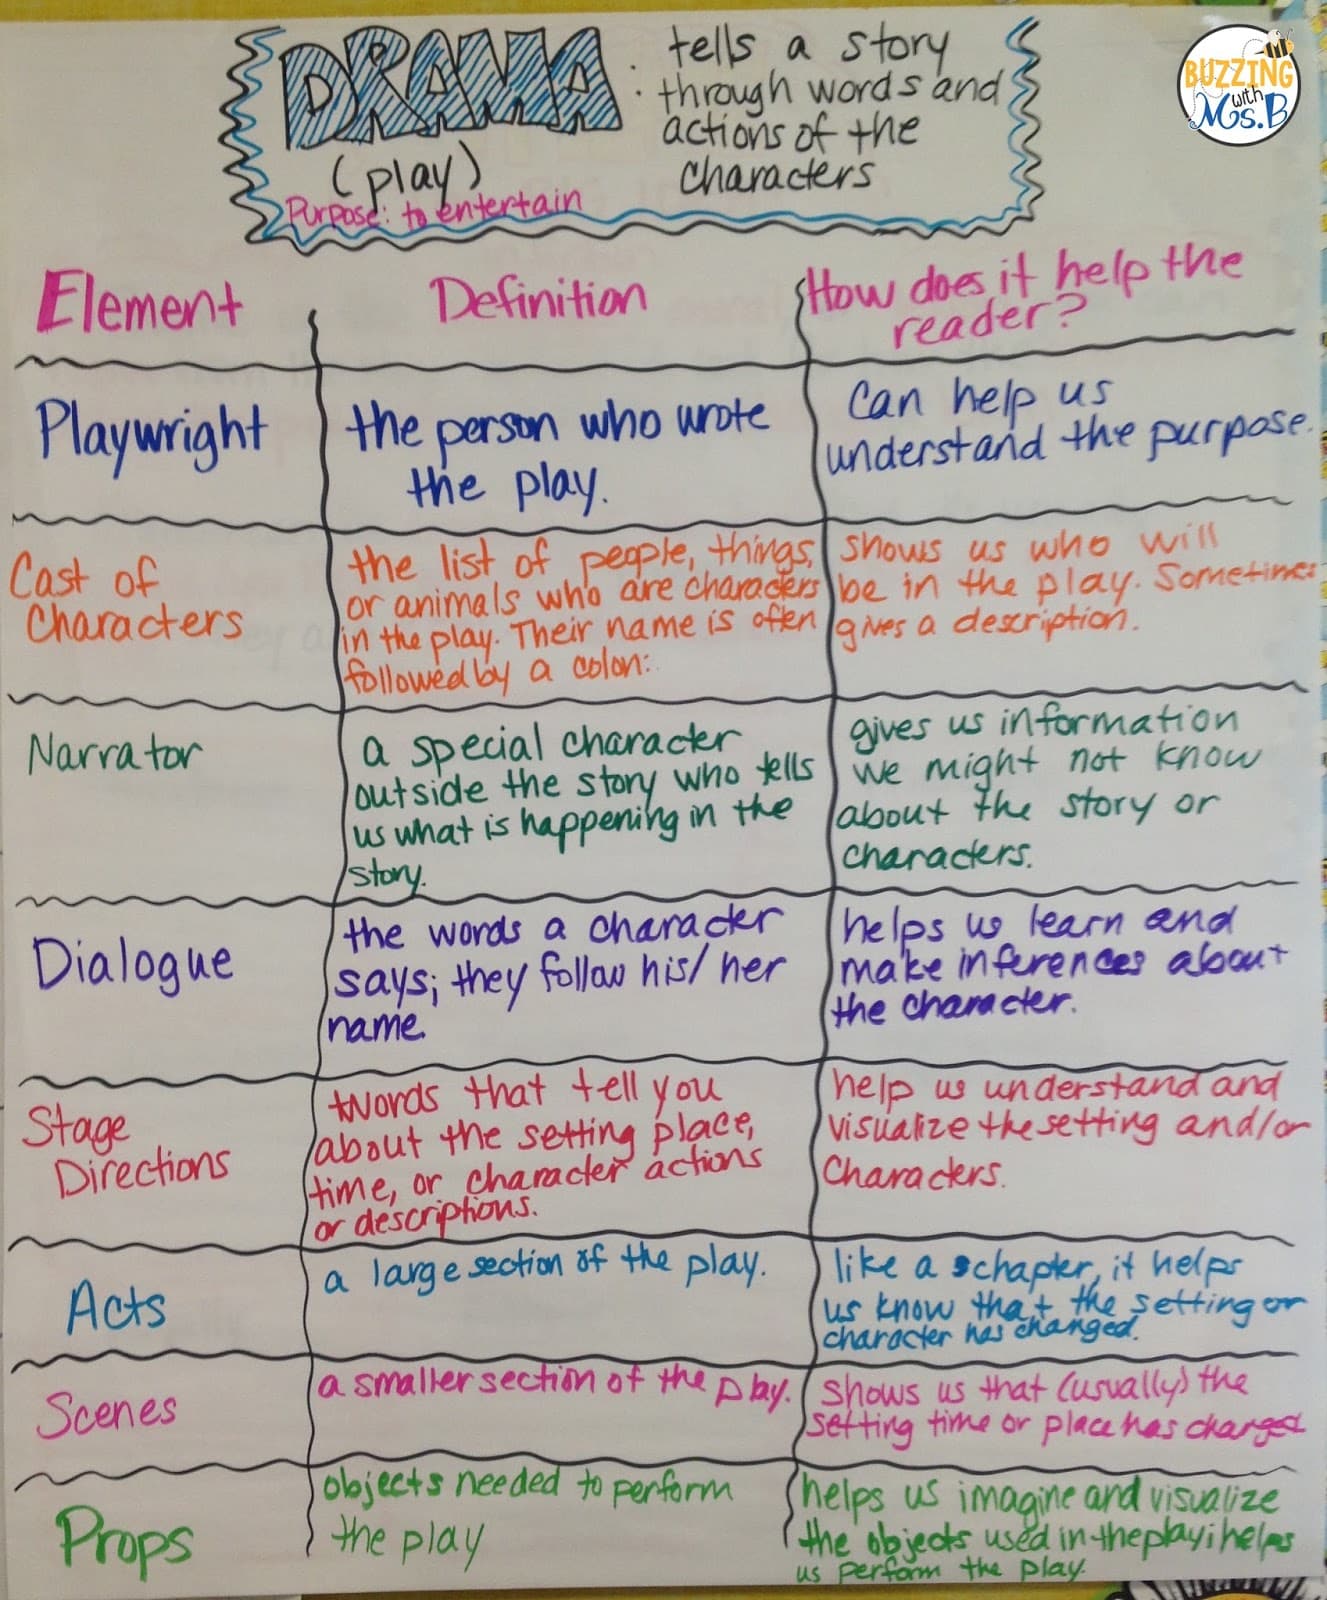 DRAMA:
(play)
Purpose: to entertain
tells a story
through words and
actions of the
characters
BUZZING
with
Ms.B
Element
Definition
How does it help the
reader?
Playwright
the person who wrote
the play.
Can help us
understand the purpose.
Cast of
Characters
the list of people, things,
or animals who are characters
in the play. Their name is often
followed by a colon:
Shows us who will
be in the play. Sometimes
gives a description.
Narrator
a special character
outside the story who tells
us what is happening in the
story.
gives us information
we might not know
about the story or
characters.
Dialogue
the words a character
says; they follow his/her
name.
helps us learn and
make inferences about
the character.
Stage
Directions
words that tell you
about the setting place,
time, or character actions
or descriptions.
help us understand and
visualize the setting and/or
Characters.
Acts
a large section of the play.
like a chapter, it helps
us know that the setting or
character has changed.
Scenes
a smaller section of the play.
Shows us that (usually) the
setting time or place has changed
Props
objects needed to perform
the play
helps us imagine and visualize
the objects used in the play; helps
us perform the play.